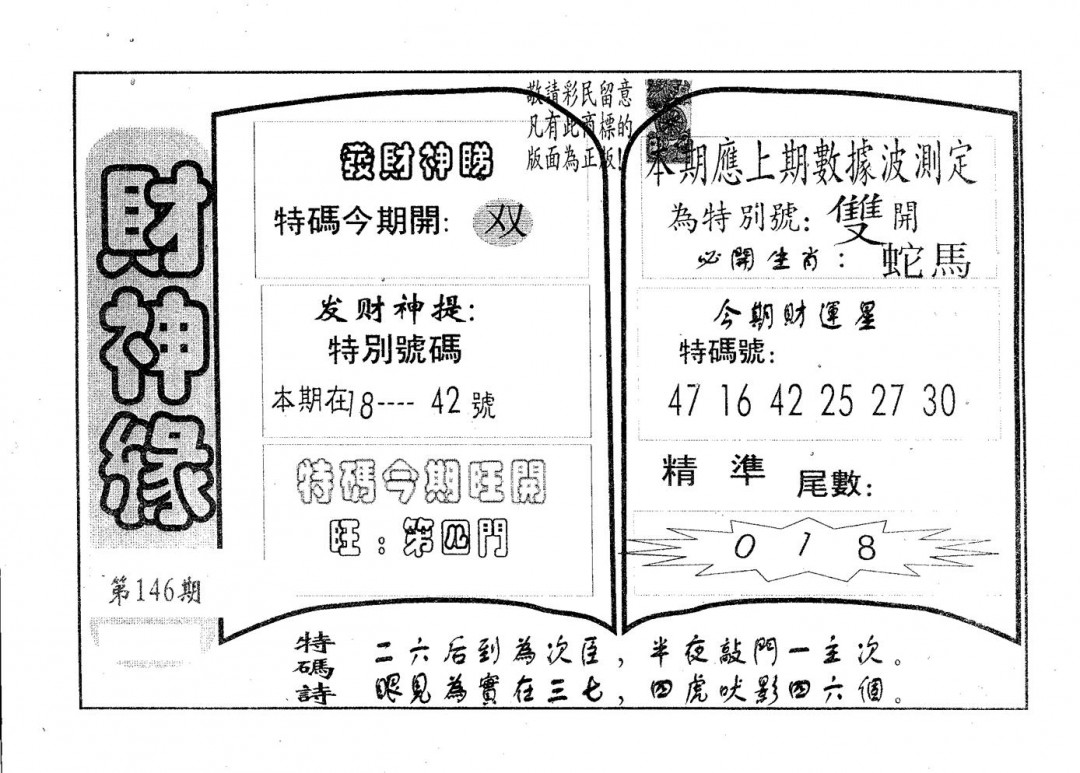 財神緣
第146期
敬請彩民留意
凡有此商標的
版面為正版!
發財神睇
特碼今期開: 双
发财神提:
特別號碼
本期在18---- 42號
特碼今期旺開
旺:第四門
本期應上期數據波測定
為特別號: 雙開
必開生肖: 蛇馬
今期財運星
特碼號:
47 16 42 25 27 30
精準 尾數:
0 1 8
特碼詩
二六后到為次臣,半夜敲門一主次。
眼見為實在三七,四虎吠影四六個。